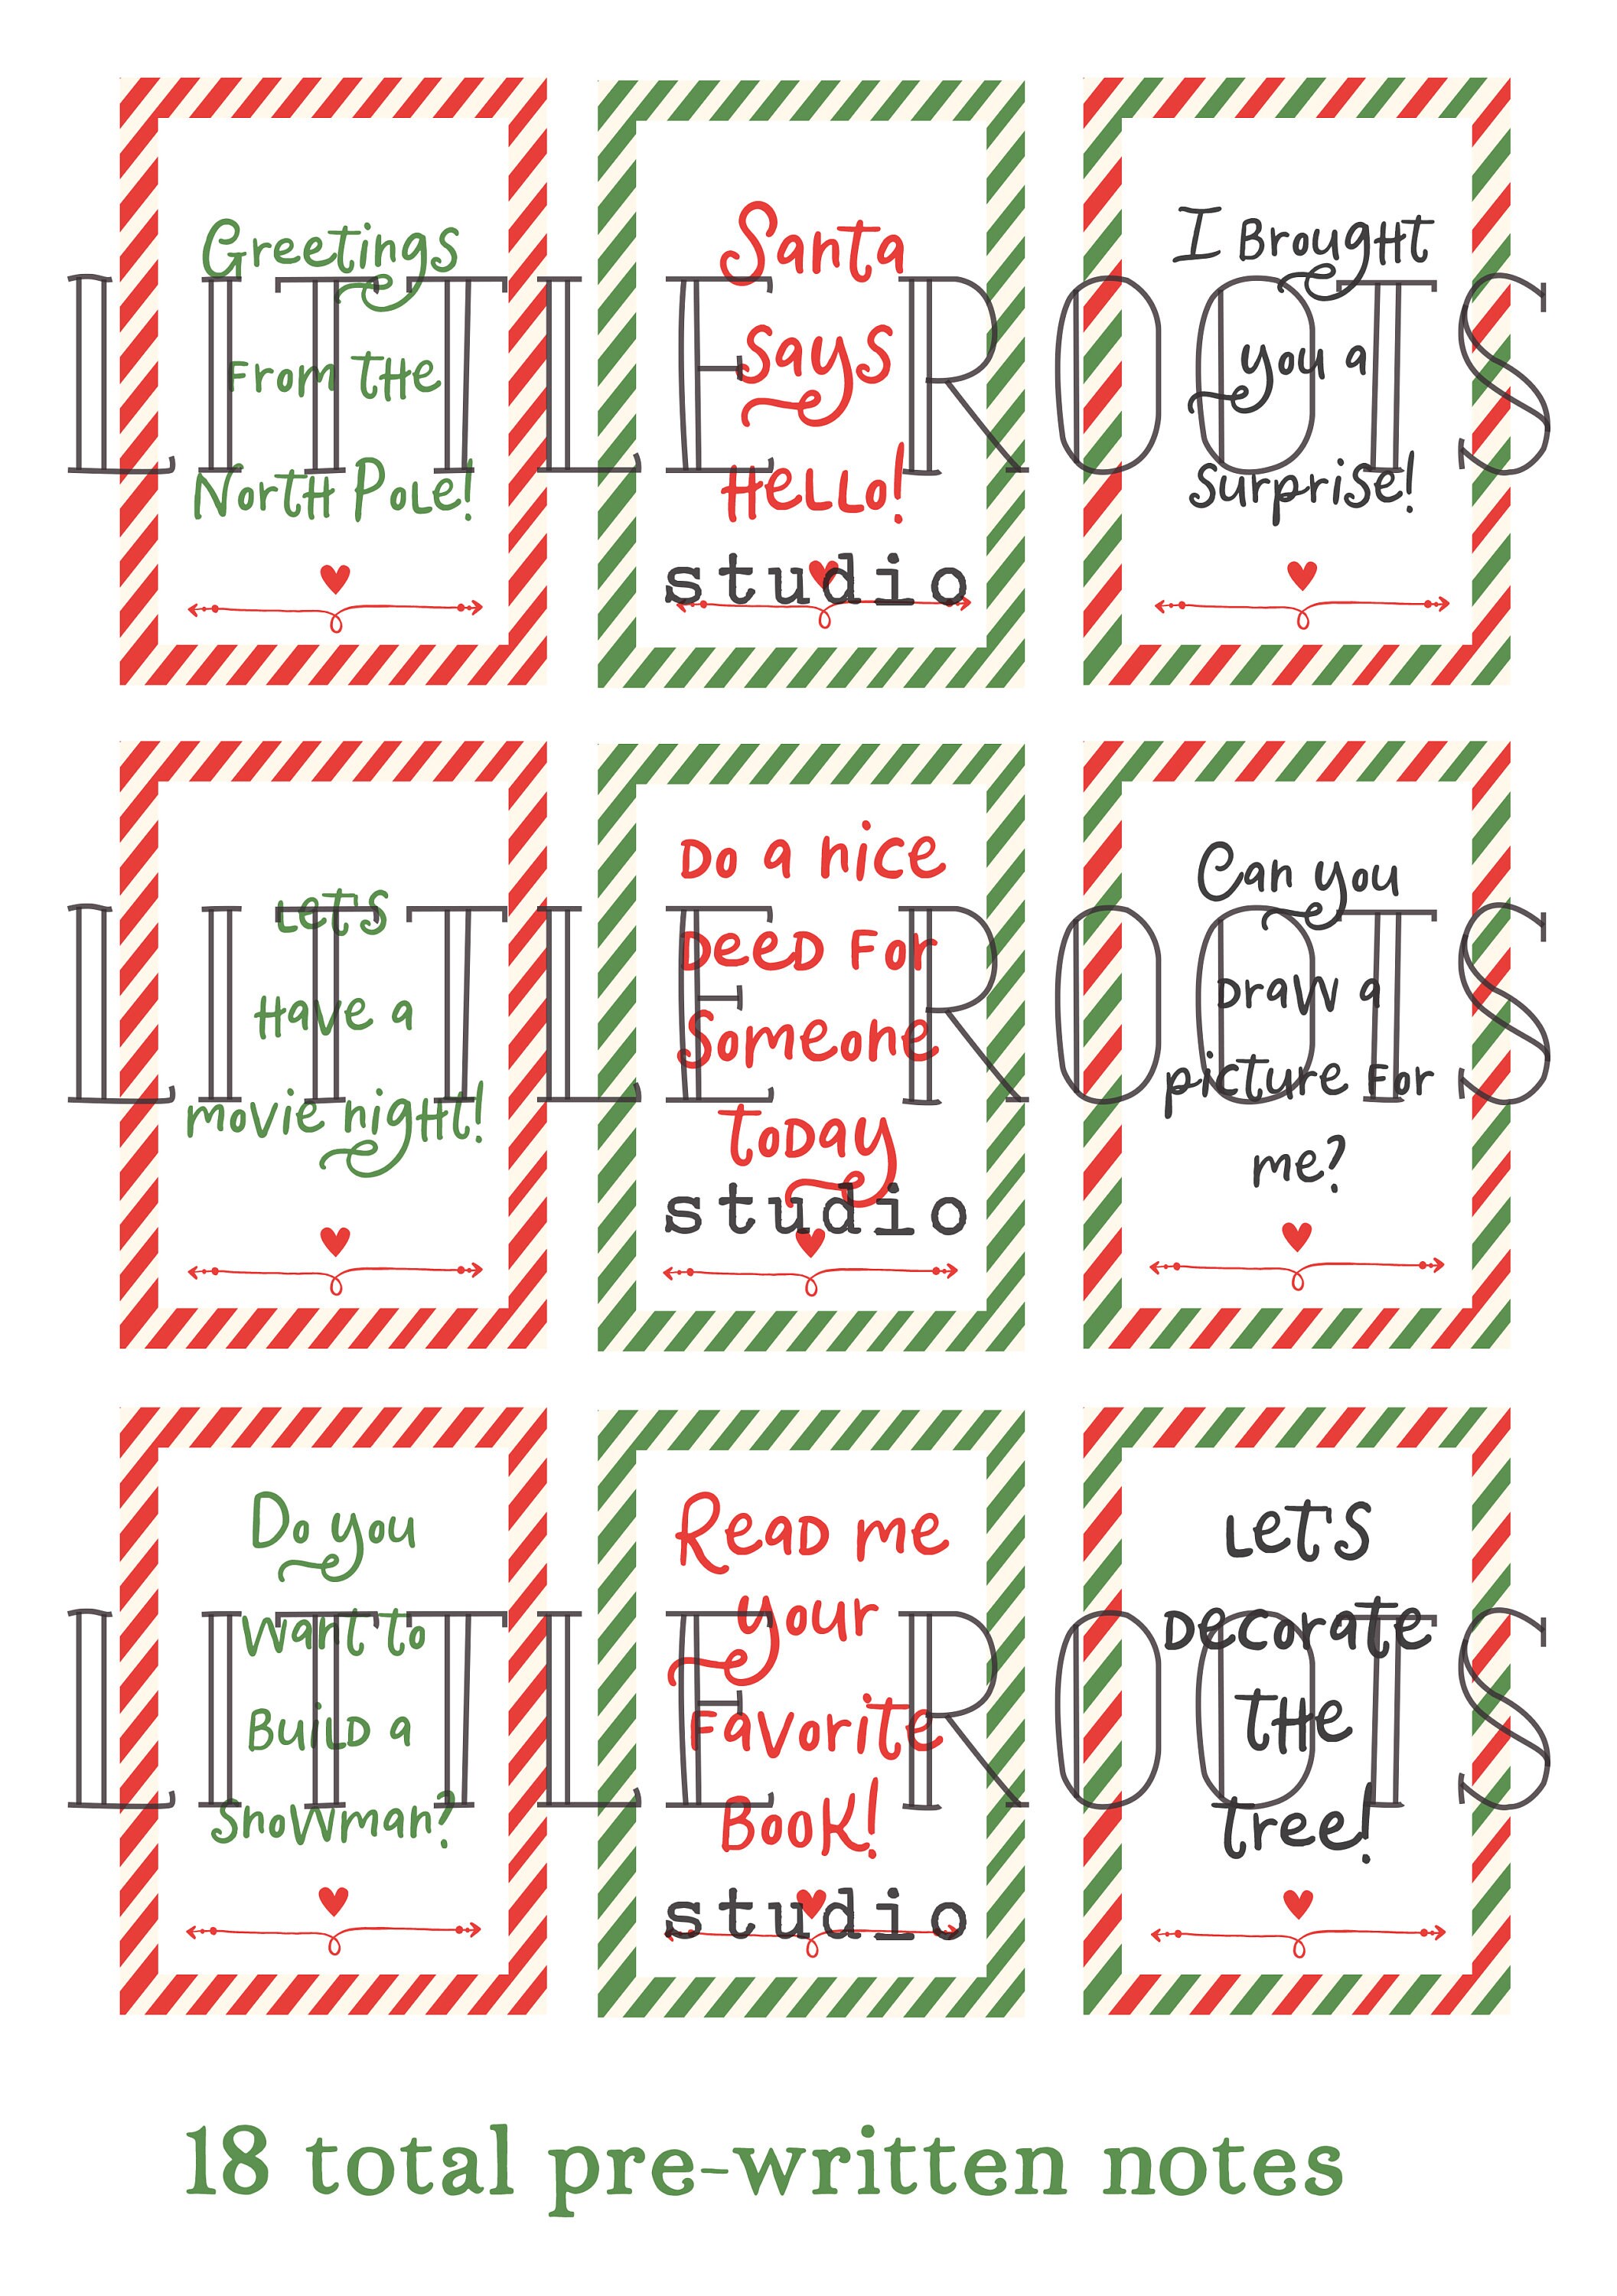 Greetings
From the
North Pole!
Santa
says
Hello!
I Brought
you a
surprise!
LITTLE ROOTS
studio
Let's
Have a
movie night!
Do a nice
Deed For
Someone
Today
Can you
Draw a
picture For
me?
LITTLE ROOTS
studio
Do you
Want to
Build a
Snowman?
Read me
your
Favorite
Book!
Let's
Decorate
The
Tree!
LITTLE ROOTS
studio
18 total pre-written notes